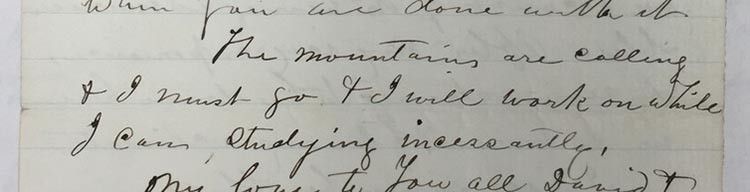 When you are done with it
The mountains are calling
& I must go & I will work on while
I can, studying incessantly.
My love to you all David &